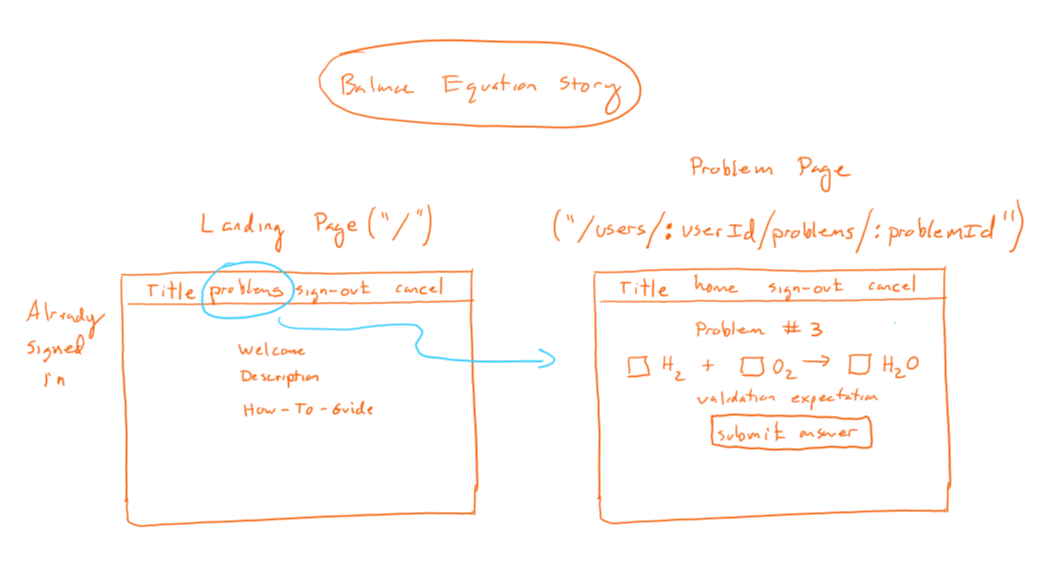 Balance Equation Story
Landing Page ("/")
Already
signed
in
Title problems sign-out cancel
Welcome
Description
How-To-Guide
Problem Page
("/users/:userId/problems/:problemId")
Title home sign-out cancel
Problem # 3
□ H₂ + □ O₂ → □ H₂O
validation expectation
submit answer